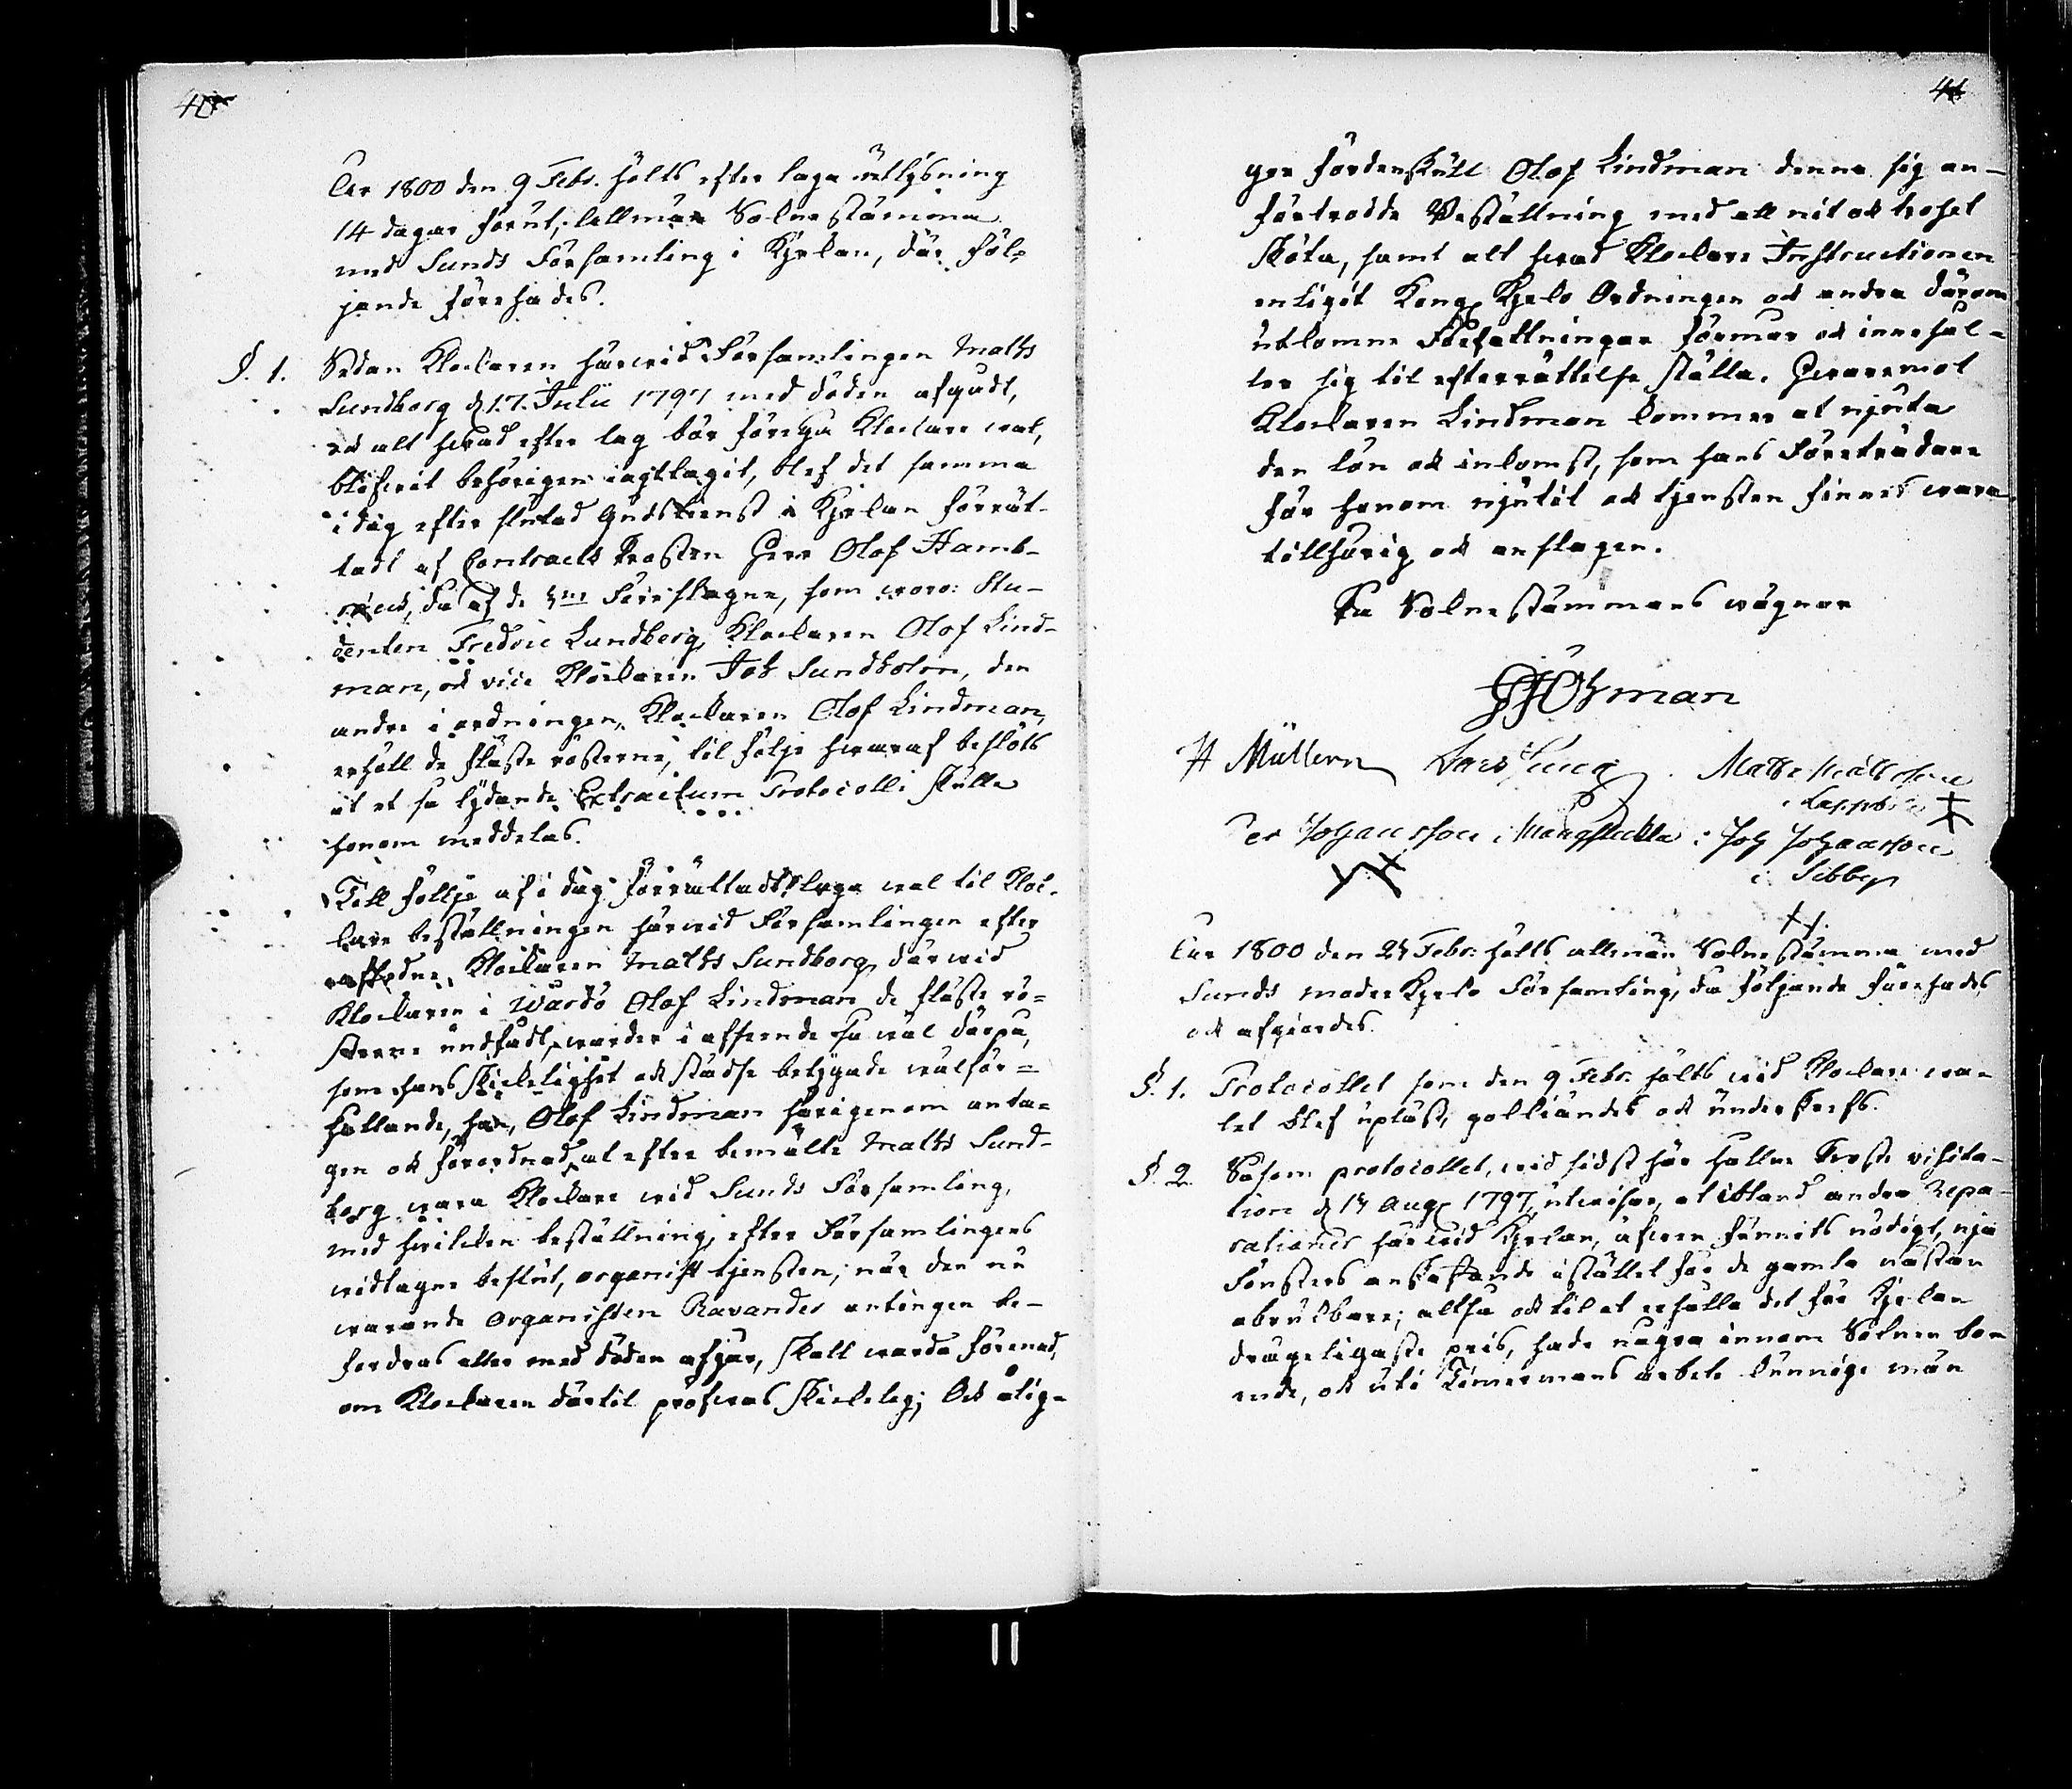 40
Åar 1800 den 9 Febr. hölts efter laga utlysning
14 dagar förut, allmän Sokne stämma
med Sunds Församling i Kyrkan, där föl-
jande förehades.
§. 1. Sedan Klockaren härwid Församlingen Maths
Sundborg d 17. Julii 1797 med döden afgådt,
ock alt hwad efter lag bör föregå Klockare wal,
blifwit behörigen iagttagit, blef det samma
i dag efter slutad Gudstienst i Kyrkan förrät-
tadt af Contracts Prosten Herr Olof Hamb-
då af de 3ne Föreslagne, som woro: Stu-
denten Fredric Lundberg, Klockaren Olof Lind-
man, ock vice Klockaren Joh Sundholm, den
andre i ordningen, Klockaren Olof Lindman,
erhöll de flästa rösterne, til följe hwaraf beslöts
at et så lydande Extractum Protocolli skulle
honom meddelas.
Till föllje af i dag förrättadt laga wal til Kloc-
kare beställningen härwid Församlingen efter
Klockaren Maths Sundborg, därwid
Klockaren i Wårdö Olof Lindman de flästa rö-
sterne undfådt, warder i afseende så wäl därpå,
som hans Skickelighet ock städse betygade wälför-
hållande, han, Olof Lindman härigenom anta-
gen ock förordnad at efter bemälte Maths Sund-
borg wara Klockare wid Sunds Församling,
med hwilcken beställning, efter Församlingens
widtagne beslut, organist tjensten, när den nu
warande organisten Ravander antingen be-
fordras eller med döden afgår, skall warda förenad,
om Klockaren därtil pröfwas Skickelig; Ock ålig-
41
ger fördenskull Olof Lindman denna sig an-
förtrodde Beställning med all nit ock trohet
sköta, samt alt hwad Klockare Instructionen
enligit Kongl Kyrko Ordningen ock andra därom
utkomne Författningar förmår ock innehål-
ler sig til efterrättelse ställa. Hwaremot
Klockaren Lindman kommer at njuta
den lön ock inkomst, som hans Företrädare
för honom njutit ock tjensten finnes wara
tillhörig ock anslagen.
På Sokne stämmans wägnar
Öhman
H Müllern Lars Matts Mattsson
i Kappbo
Per Johansson i Mångstekta Joh Johansson
i Sibby
Åar 1800 den 23 Febr. hölts allmän Sokne stämma med
Sunds moder Kyrko Församling, då följande förehades
ock afgiordes.
§. 1. Protocollet som den 9 Febr. hölts wid Klockare wa-
let blef upläst, gotkiändes ock underskrefs.
§. 2. Såsom protocollet, wid sidst här hållne Prosta visita-
tion d 13 Aug 1797, utwisar, at ibland andra Repa-
rationer här wid Kyrkan, äfwen funnits nödigt, nya
Fönsters anskaffande i stället för de gamla nästan
obrukbara; altså ock til at erhålla det för Kyrkan
drägeligaste pris, hade några innom Soknen bo-
ende, ock uti Timmermans arbete kunnige män